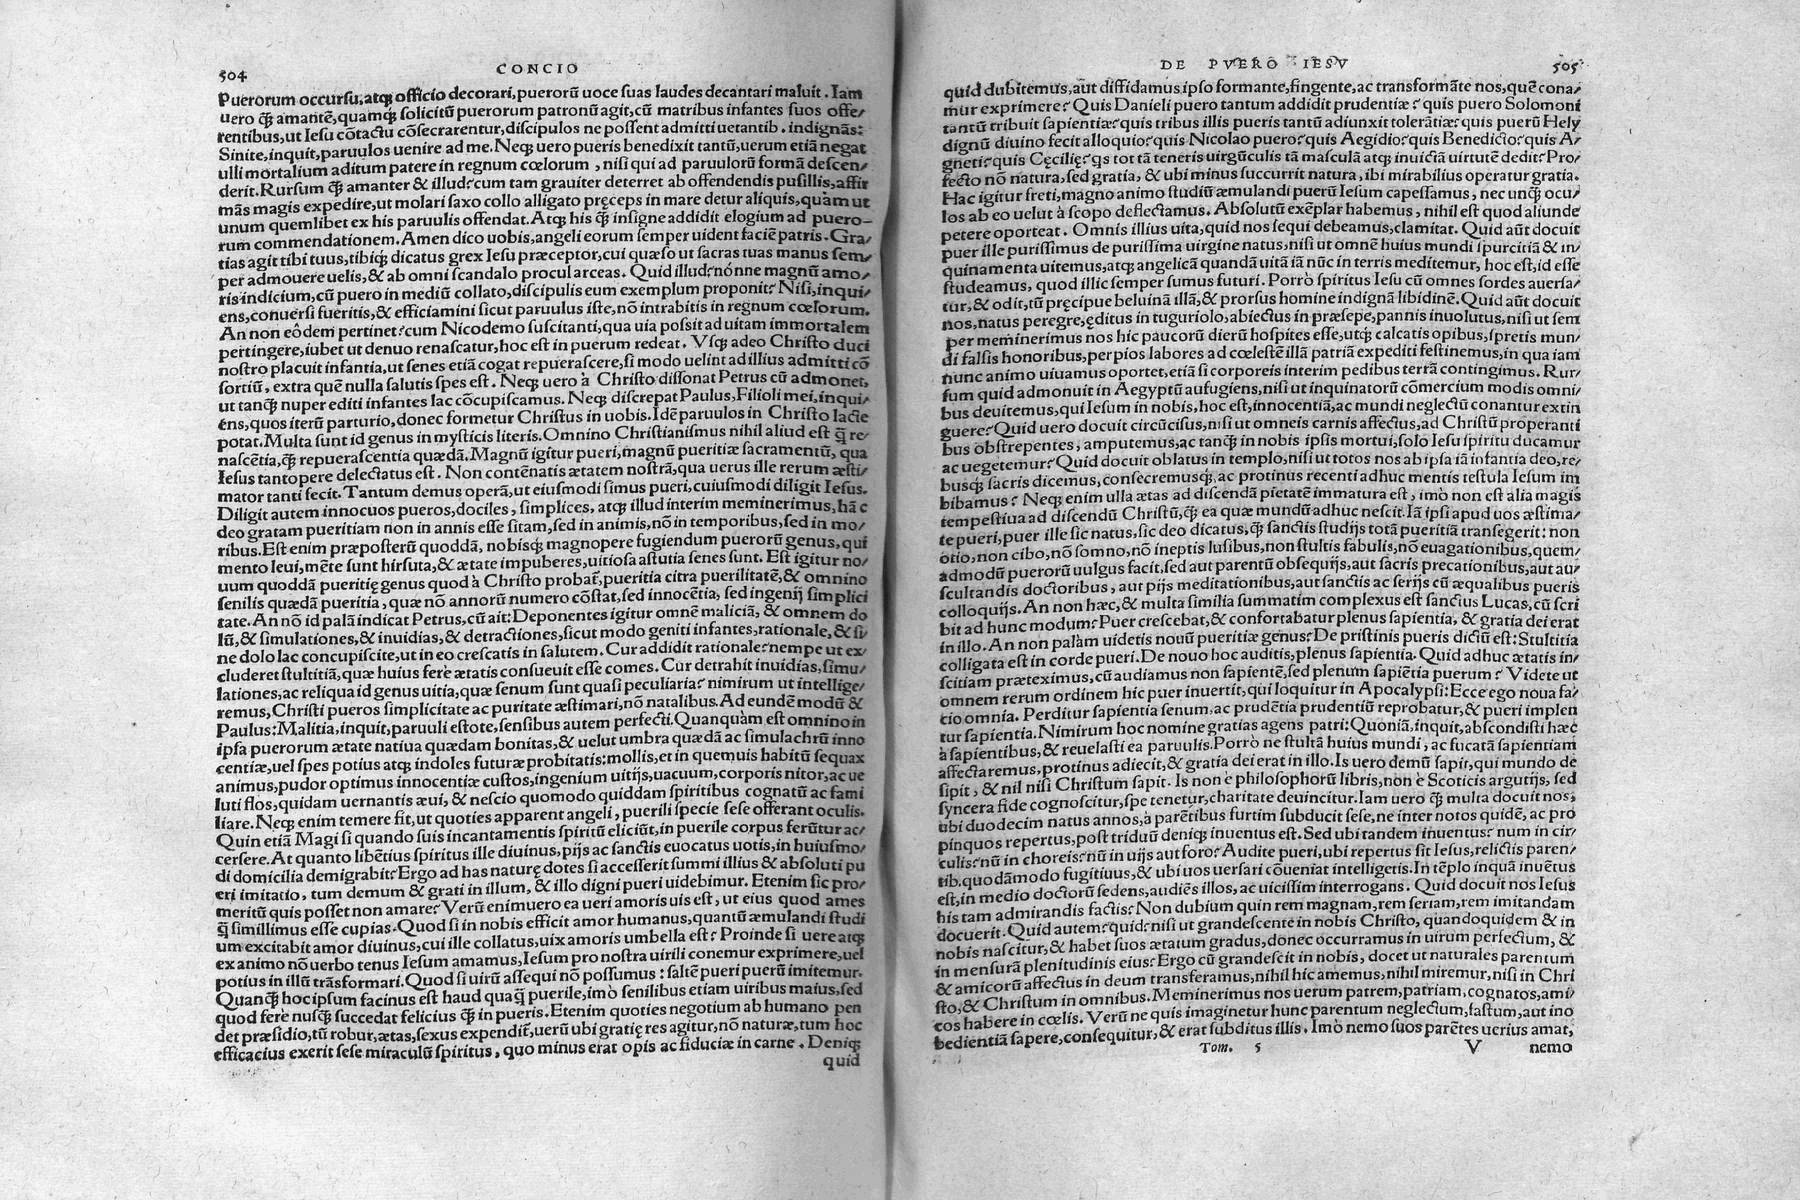 504
CONCIO
Puerorum occursu, atq; officio decorari, puerorū uoce suas laudes decantari maluit. Iam
uero q̃ amantē, quamq; solicitū puerorum patronū agit, cū matribus infantes suos offe/
rentibus, ut Iesu cōtactu cōsecrarentur, discipulos ne possent admitti uetantib. indignās:
Sinite, inquit, paruulos uenire ad me. Neq; uero pueris benedixit tantū, uerum etiā negat
ulli mortalium aditum patere in regnum cœlorum, nisi qui ad paruulorū formā descen/
derit. Rursum q̃ amanter & illud? cum tam grauiter deterret ab offendendis pusillis, affir
mās magis expedire, ut molari saxo collo alligato pręceps in mare detur aliquis, quàm ut
unum quemlibet ex his paruulis offendat. Atq; his q̃ insigne addidit elogium ad puero-
rum commendationem. Amen dico uobis, angeli eorum semper uident faciē patris. Gra/
tias agit tibi tuus, tibiq; dicatus grex Iesu præceptor, cui quæso ut sacras tuas manus sem/
per admouere uelis, & ab omni scandalo procul arceas. Quid illud? nónne magnū amo/
ris indicium, cū puero in mediū collato, discipulis eum exemplum proponit? Nisi, inqui/
ens, conuersi fueritis, & efficiamini sicut paruulus iste, nō intrabitis in regnum cœlorum.
An non eôdem pertinet? cum Nicodemo suscitanti, qua uia possit ad uitam immortalem
pertingere, iubet ut denuo renascatur, hoc est in puerum redeat. Vsq; adeo Christo duci
nostro placuit infantia, ut senes etiā cogat repuerascere, si modo uelint ad illius admitti cō
sortiū, extra quē nulla salutis spes est. Neq; uero à Christo dissonat Petrus cū admonet,
ut tanq̃ nuper editi infantes lac cōcupiscamus. Neq; discrepat Paulus, Filioli mei, inqui/
éns, quos iterū parturio, donec formetur Christus in uobis. Idē paruulos in Christo lacte
potat. Multa sunt id genus in mysticis literis. Omnino Christianismus nihil aliud est q̃ re/
nascētia, q̃ repuerascentia quædā. Magnū igitur pueri, magnū pueritiæ sacramentū, qua
Iesus tantopere delectatus est. Non contēnatis ætatem nostrā, qua uerus ille rerum æsti/
mator tanti fecit. Tantum demus operā, ut eiusmodi simus pueri, cuiusmodi diligit Iesus.
Diligit autem innocuos pueros, dociles, simplices, atq; illud interim meminerimus, hāc
deo gratam pueritiam non in annis esse sitam, sed in animis, nō in temporibus, sed in mo/
ribus. Est enim præposterū quoddā, nobisq; magnopere fugiendum puerorū genus, qui
mento leui, mēte sunt hirsuta, & ætate impuberes, uitiosa astutia senes sunt. Est igitur no/
uum quoddā pueritię genus quod à Christo probat̃, pueritia citra puerilitatē, & omnino
senilis quædā pueritia, quæ nō annorū numero cōstat, sed innocētia, sed ingenij simplici
tate. An nō id palā indicat Petrus, cū ait: Deponentes igitur omnē maliciā, & omnem do
lū, & simulationes, & inuidias, & detractiones, sicut modo geniti infantes, rationale, & si/
ne dolo lac concupiscite, ut in eo crescatis in salutem. Cur addidit rationale? nempe ut ex/
cluderet stultitiā, quæ huius ferè ætatis consueuit esse comes. Cur detrahit inuidias, simu/
lationes, ac reliqua id genus uitia, quæ senum sunt quasi peculiaria? nimirum ut intellige/
remus, Christi pueros simplicitate ac puritate æstimari, nō natalibus. Ad eundē modū &
Paulus: Malitia, inquit, paruuli estote, sensibus autem perfecti. Quanquàm est omnino in
ipsa puerorum ætate natiua quædam bonitas, & uelut umbra quædā ac simulachrū inno
centiæ, uel spes potius atq; indoles futuræ probitatis: mollis, et in quemuis habitū sequax
animus, pudor optimus innocentiæ custos, ingenium uitijs, uacuum, corporis nitor, ac ue
luti flos, quidam uernantis æui, & nescio quomodo quiddam spiritibus cognatū ac fami
liare. Neq; enim temere fit, ut quoties apparent angeli, puerili specie sese offerant oculis.
Quin etiā Magi si quando suis incantamentis spiritū eliciūt, in puerile corpus ferūtur ac/
cersere. At quanto libētius spiritus ille diuinus, pijs ac sanctis euocatus uotis, in huiusmo/
di domicilia demigrabit? Ergo ad has naturę dotes si accesserit summi illius & absoluti pu
eri imitatio, tum demum & grati in illum, & illo digni pueri uidebimur. Etenim sic pro/
meritū quis posset non amare? Verū enimuero ea ueri amoris uis est, ut eius quod ames
q̃ simillimus esse cupias. Quod si in nobis efficit amor humanus, quantū æmulandi studi
um excitabit amor diuinus, cui ille collatus, uix amoris umbella est? Proinde si uere atq;
ex animo nō uerbo tenus Iesum amamus, Iesum pro nostra uirili conemur exprimere, uel
potius in illū trāsformari. Quod si uirū assequi nō possumus: saltē pueri puerū imitemur.
Quanq̃ hoc ipsum facinus est haud quaq̃ puerile, imò senilibus etiam uiribus maius, sed
quod ferè nusq̃ succedat felicius q̃ in pueris. Etenim quoties negotium ab humano pen
det præsidio, tū robur, ætas, sexus expendit̃, uerū ubi gratię res agitur, nō naturæ, tum hoc
efficacius exerit sese miraculū spiritus, quo minus erat opis ac fiduciæ in carne. Deniq;
quid
DE PVERO IESV
505
quid dubitemus, aūt diffidamus, ipso formante, fingente, ac transformāte nos, quē cona/
mur exprimere? Quis Danieli puero tantum addidit prudentiæ? quis puero Solomoni
tantū tribuit sapientiæ? quis tribus illis pueris tantū adiunxit tolerātiæ? quis puerū Hely
dignū diuino fecit alloquio? quis Nicolao puero? quis Aegidio? quis Benedicto? quis A/
gneti? quis Cęcilię? qs tot tā teneris uirgūculis tā masculā atq; inuictā uirtutē dedit? Pro/
fecto nō natura, sed gratia, & ubi minus succurrit natura, ibi mirabilius operatur gratia.
Hac igitur freti, magno animo studiū æmulandi puerū Iesum capessamus, nec unq̃ ocu/
los ab eo uelut à scopo deflectamus. Absolutū exēplar habemus, nihil est quod aliunde
petere oporteat. Omnis illius uita, quid nos sequi debeamus, clamitat. Quid aūt docuit
puer ille purissimus de purissima uirgine natus, nisi ut omnē huius mundi spurcitiā & in/
quinamenta uitemus, atq; angelicā quandā uitā iā nūc in terris meditemur, hoc est, id esse
studeamus, quod illic semper sumus futuri. Porrò spiritus Iesu cū omnes sordes auersa/
tur, & odit, tū pręcipue beluinā illā, & prorsus homine indignā libidinē. Quid aūt docuit
nos, natus peregre, ęditus in tuguriolo, abiectus in præsepe, pannis inuolutus, nisi ut sem
per meminerimus nos hic paucorū dierū hospites esse, utq; calcatis opibus, spretis mun/
di falsis honoribus, per pios labores ad cœlestē illā patriā expediti festinemus, in qua iam
nunc animo uiuamus oportet, etiā si corporeis interim pedibus terrā contingimus. Rur/
sum quid admonuit in Aegyptū aufugiens, nisi ut inquinatorū cōmercium modis omni/
bus deuitemus, qui Iesum in nobis, hoc est, innocentiā, ac mundi neglectū conantur extin
guere? Quid uero docuit circūcisus, nisi ut omneis carnis affectus, ad Christū properanti
bus obstrepentes, amputemus, ac tanq̃ in nobis ipsis mortui, solo Iesu spiritu ducamur
ac uegetemur? Quid docuit oblatus in templo, nisi ut totos nos ab ipsa iā infantia deo, re/
busq; sacris dicemus, consecremusq;, ac protinus recenti adhuc mentis testula Iesum im
bibamus? Neq; enim ulla ætas ad discendā pietatē immatura est, imò non est alia magis
tempestiua ad discendū Christū, q̃ ea quæ mundū adhuc nescit. Iā ipsi apud uos æstima/
te pueri, puer ille sic natus, sic deo dicatus, q̃ sanctis studijs totā pueritiā transegerit: non
otio, non cibo, nō somno, nō ineptis lusibus, non stultis fabulis, nō euagationibus, quem/
admodū puerorū uulgus facit, sed aut parentū obsequijs, aut sacris precationibus, aut au/
scultandis doctoribus, aut pijs meditationibus, aut sanctis ac serijs cū æqualibus pueris
colloquijs. An non hæc, & multa similia summatim complexus est sanctus Lucas, cū scri
bit ad hunc modum? Puer crescebat, & confortabatur plenus sapientia, & gratia dei erat
in illo. An non palàm uidetis nouū pueritiæ genus? De pristinis pueris dictū est: Stultitia
colligata est in corde pueri. De nouo hoc auditis, plenus sapientia. Quid adhuc ætatis in/
scitiam præteximus, cū audiamus non sapientē, sed plenum sapiētia puerum? Videte ut
omnem rerum ordinem hic puer inuertit, qui loquitur in Apocalypsi: Ecce ego noua fa/
cio omnia. Perditur sapientia senum, ac prudētia prudentiū reprobatur, & pueri implen
tur sapientia. Nimirum hoc nomine gratias agens patri: Quoniā, inquit, abscondisti hæc
à sapientibus, & reuelasti ea paruulis. Porrò ne stultā huius mundi, ac fucatā sapientiam
affectaremus, protinus adiecit, & gratia dei erat in illo. Is uero demū sapit, qui mundo de
sipit, & nil nisi Christum sapit. Is non è philosophorū libris, non è Scoticis argutijs, sed
syncera fide cognoscitur, spe tenetur, charitate deuincitur. Iam uero q̃ multa docuit nos,
ubi duodecim natus annos, à parētibus furtim subducit sese, ne inter notos quidē, ac pro
pinquos repertus, post triduū deniq; inuentus est. Sed ubi tandem inuentus? num in cir/
culis? nū in choreis? nū in uijs aut foro? Audite pueri, ubi repertus sit Iesus, relictis paren/
tib. quodāmodo fugitiuus, & ubi uos uersari cōueniat intelligetis. In tēplo inquā inuētus
est, in medio doctorū sedens, audiēs illos, ac uicissim interrogans. Quid docuit nos Iesus
his tam admirandis factis? Non dubium quin rem magnam, rem seriam, rem imitandam
docuerit. Quid autem? quid? nisi ut grandescente in nobis Christo, quandoquidem & in
nobis nascitur, & habet suos ætatum gradus, donec occurramus in uirum perfectum, &
in mensurā plenitudinis eius? Ergo cū grandescit in nobis, docet ut naturales parentum
& amicorū affectus in deum transferamus, nihil hic amemus, nihil miremur, nisi in Chri
sto, & Christum in omnibus. Meminerimus nos uerum patrem, patriam, cognatos, ami/
cos habere in cœlis. Verū ne quis imaginetur hunc parentum neglectum, fastum, aut ino
bedientiā sapere, consequitur, & erat subditus illis. Imò nemo suos parētes uerius amat,
Tom. 5
V
nemo